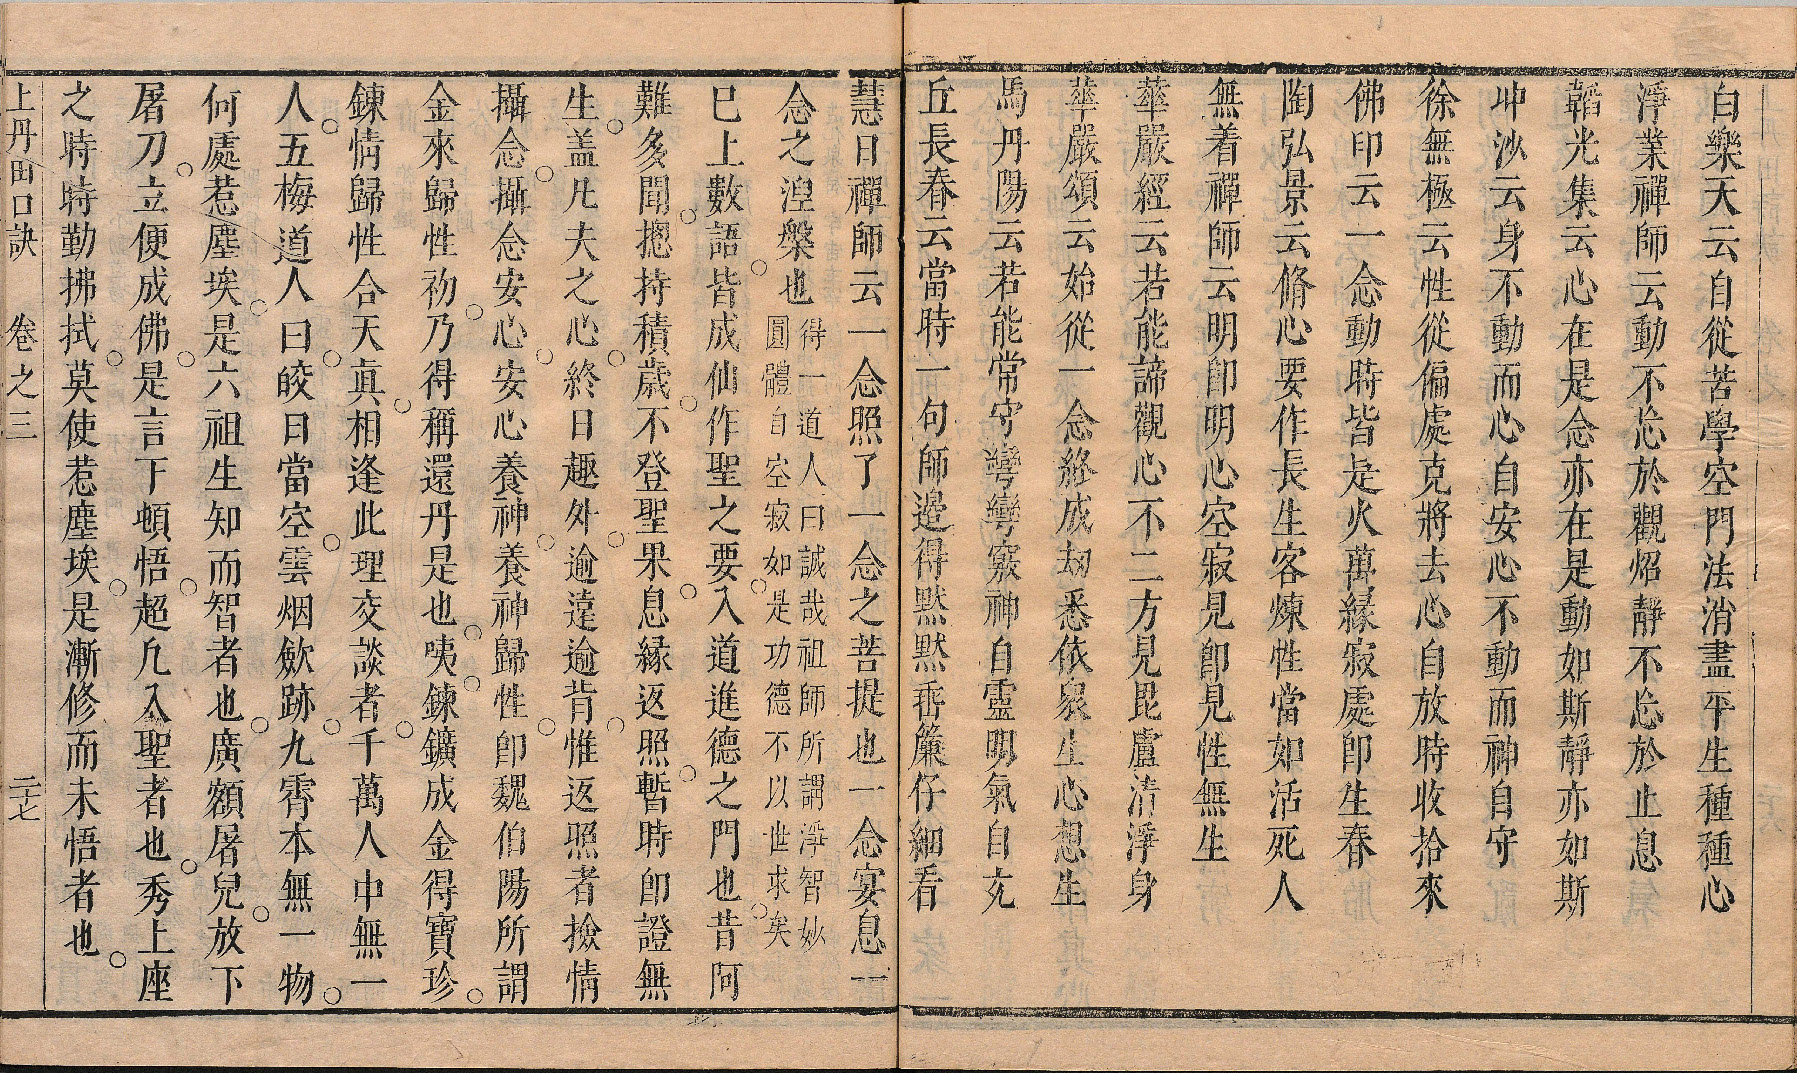 白樂天云自從苦學空門法消盡平生種種心
淨業禪師云動不忘於觀炤靜不忘於止息
韜光集云心在是念亦在是動如斯靜亦如斯
坤沙云身不動而心自安心不動而神自守
徐無極云性從偏處克將去心自放時收拾來
佛印云一念動時皆是火萬緣寂處卽生春
陶弘景云脩心要作長生客煉性當如活死人
無着禪師云明卽明心空寂見卽見性無生
華嚴經云若能諦觀心不二方見毘盧清淨身
華嚴頌云始從一念終成劫悉依衆生心想生
馬丹陽云若能常守彎彎竅神自靈明氣自充
丘長春云當時一句師邉得默默垂簾仔細看
慧日禪師云一念照了一念之菩提也一念宴息一
念之湼槃也
得一道人曰誠哉祖師所謂淨智妙
圓體自空寂如是功德不以世求矣
已上數語皆成仙作聖之要入道進德之門也昔阿
難多聞摠持積歲不登聖果息緣返照暫時卽證無
生盖凡夫之心終日趣外逾遠逾背惟返照者撿情
攝念攝念安心安心養神養神歸性卽魏伯陽所謂
金來歸性初乃得稱還丹是也咦鍊鑛成金得寶珍
鍊情歸性合天眞相逢此理交談者千萬人中無一
人五梅道人曰皎日當空雲烟歛跡九霄本無一物
何處惹塵埃是六祖生知而智者也廣額屠兒放下
屠刀立便成佛是言下頓悟超凡入聖者也秀上座
之時時勤拂拭莫使惹塵埃是漸修而未悟者也
上丹田口訣 卷之三 二十七